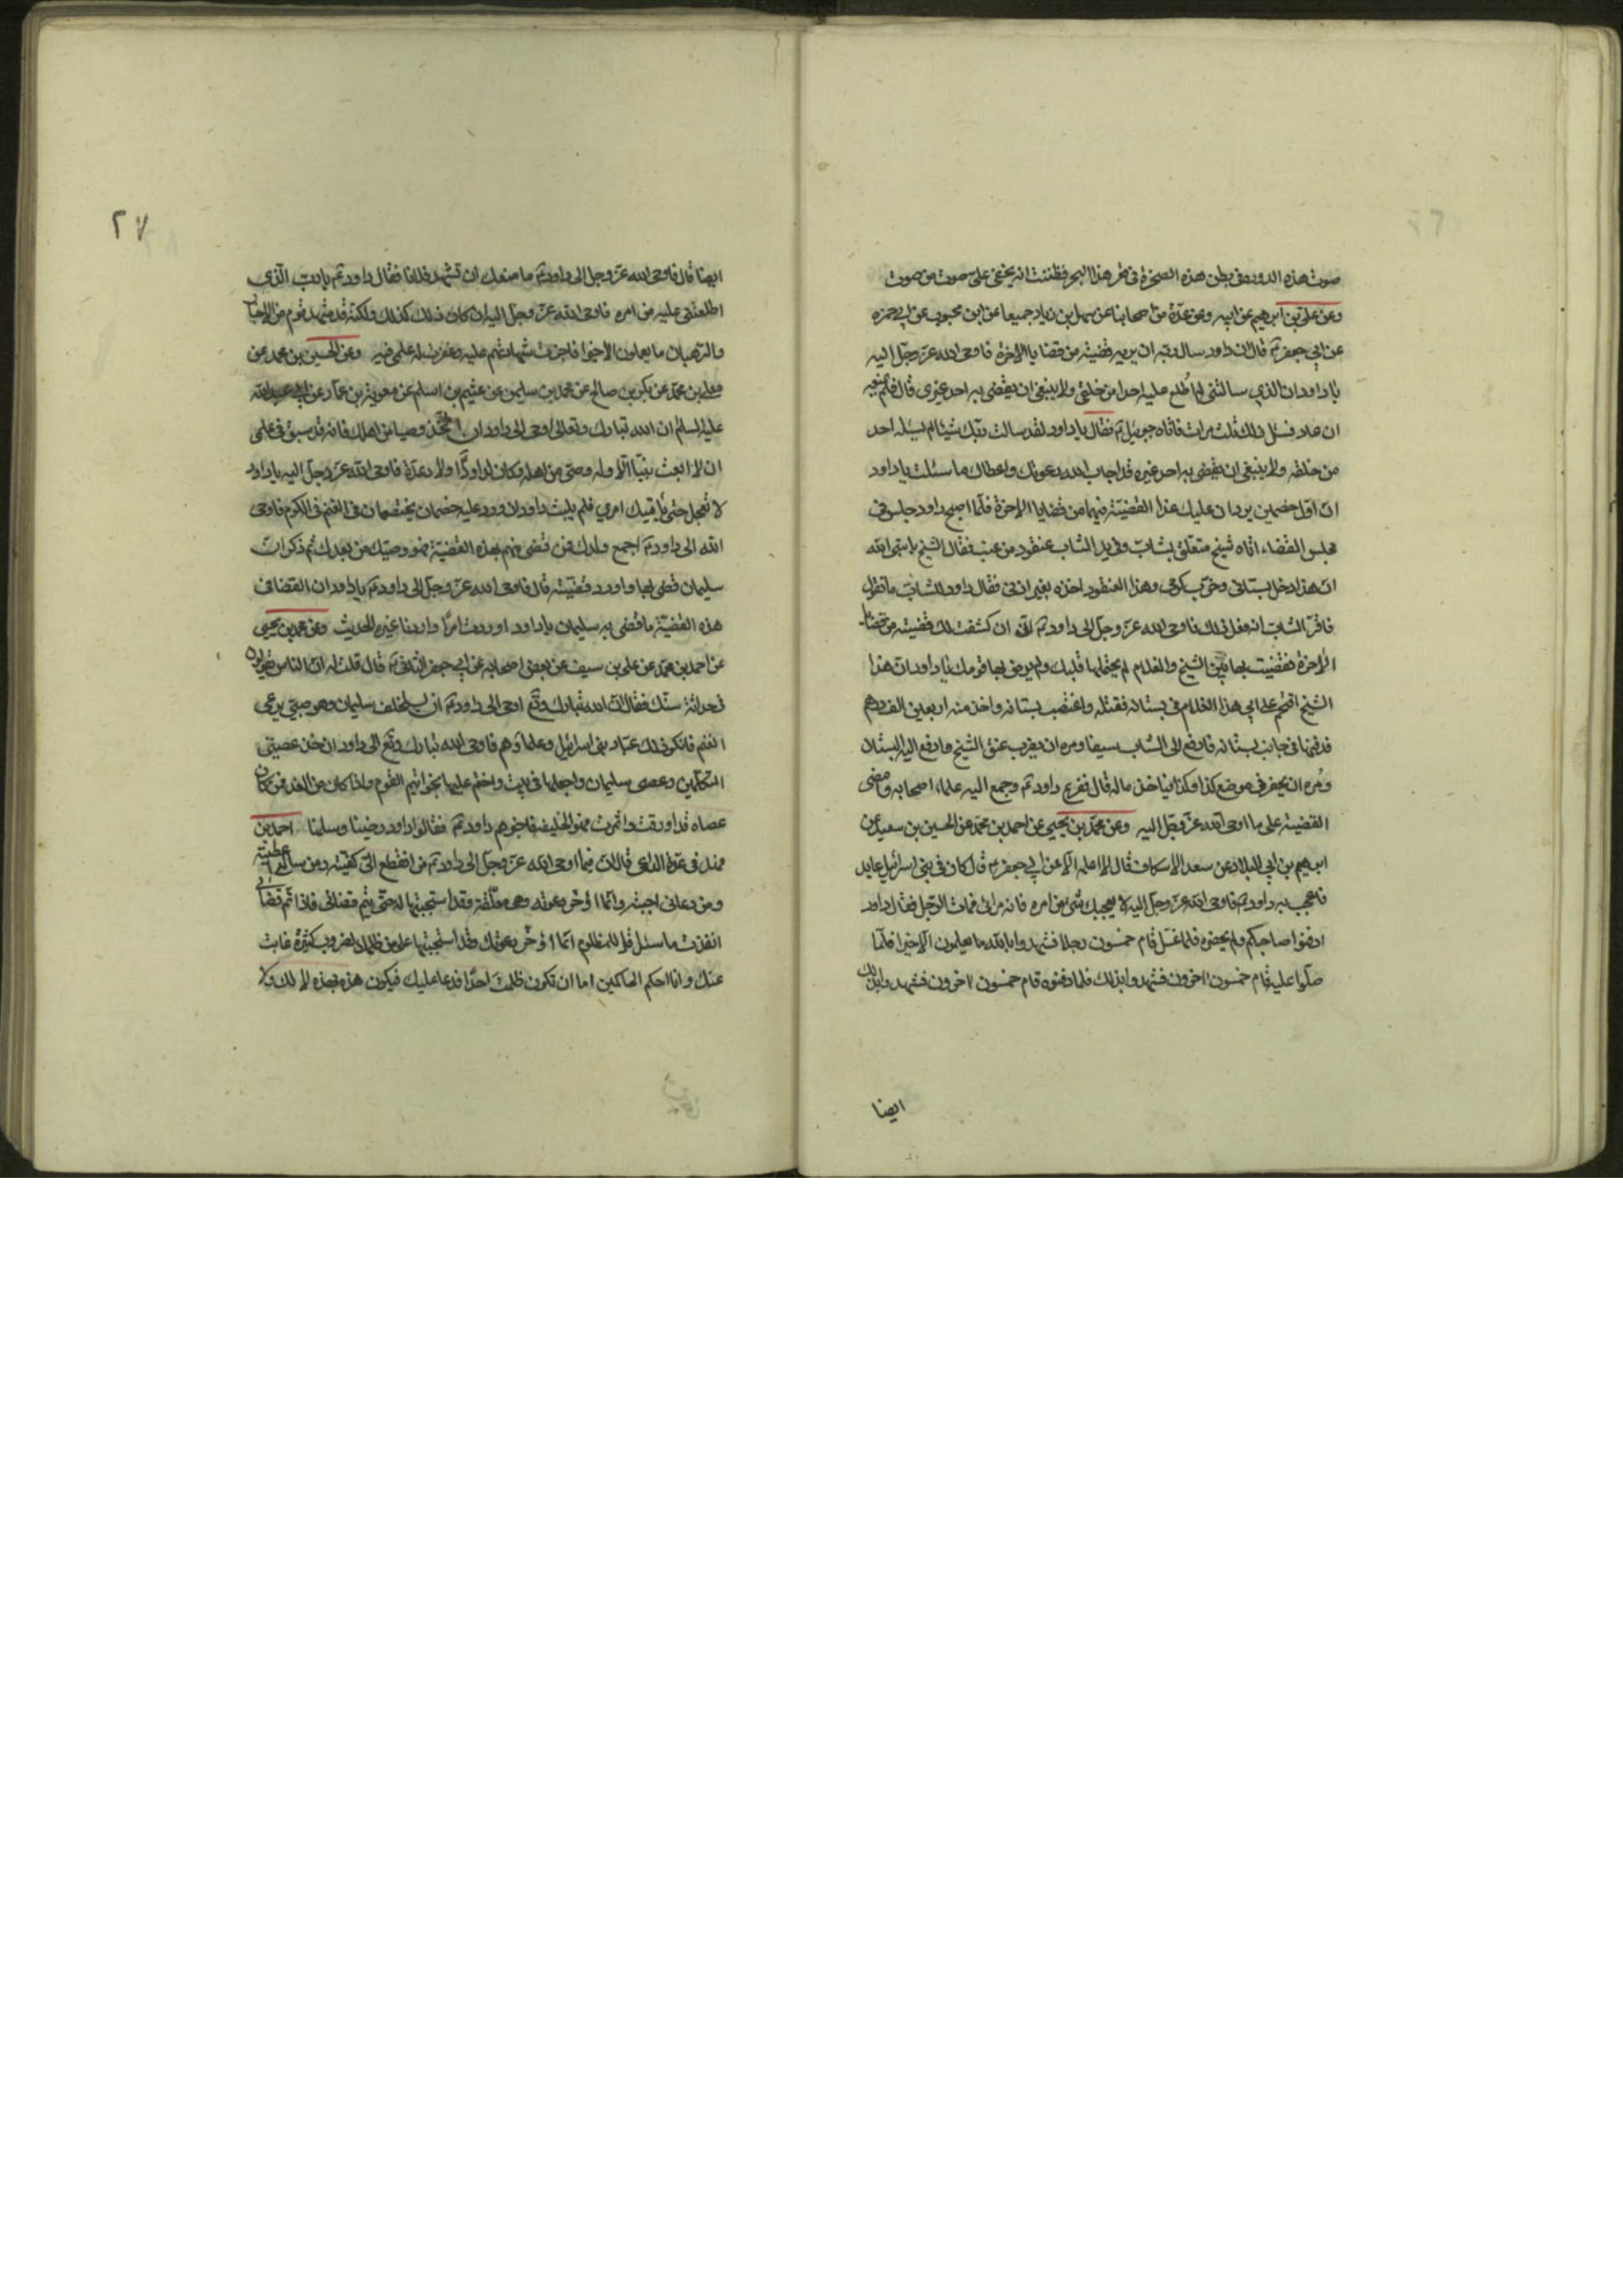 صوت هذه الدودة في بطن هذه الصخرة في قعر هذا البحر فظننت انه يخفى علي صوت من صوت
وعن علي بن ابرهيم عن ابيه وعن عدة من اصحابنا عن سهل بن زياد جميعا عن ابن محبوب عن ابي حمزه
عن ابي جعفر ع قال ان داود سال ربه ان يريه قضية من قضايا الاخرة فاوحى الله عز وجل اليه
يا داود ان الذي سالتني لم اطلع عليه احدا من خلقي ولا ينبغي ان يقضي به احد غيري قال فلم يمنعه
ان عاد فسئل ذلك ثلث مرات فاتاه جبرئيل ع فقال يا داود لقد سالت ربك شيئا لم يسئله احد
من خلقه ولا ينبغي ان يقضي به احد غيره قد اجاب الله دعوتك واعطاك ما سئلت يا داود
ان اول خصمين يردان عليك غدا القضية فيهما من قضايا الاخرة فلما اصبح داود جلس في
مجلس القضاء اتاه شيخ متعلق بشاب وفي يد الشاب عنقود من عنب فقال الشيخ يا نبي الله
ان هذا دخل بستاني وخرب كرمي وهذا العنقود اخذه بغير اذني فقال داود للشاب ما تقول
فاقر الشاب انه فعل ذلك فاوحى الله عز وجل الى داود ع اني ان كشفت لك قضية من قضايا
الاخرة فقضيت بها بين الشيخ والغلام لم يحتملها قلبك ولم يرض بها قومك يا داود ان هذا
الشيخ اقتحم على ابي هذا الغلام في بستانه فقتله واغتصب بستانه واخذ منه اربعين الف درهم
فدفنها في جانب بستانه فادفع الى الشاب سيفا ومره ان يضرب عنق الشيخ وادفع اليه البستان
ومره ان يحفر في موضع كذا وكذا فياخذ ماله قال ففزع داود ع وجمع اليه علماء اصحابه وامضى
القضية على ما اوحى الله عز وجل اليه وعن محمد بن يحيى عن احمد بن محمد عن الحسين بن سعيد عن
ابرهيم بن ابي البلاد عن سعد الاسكاف قال لا اعلمه الا عن ابي جعفر ع قال كان في بني اسرائيل عابد
فاعجب به داود ع فاوحى الله عز وجل اليه لا يعجبك شي من امره فانه مرائي فمات الرجل فقال داود
ادفنوا صاحبكم ولم يحضره فلما غسل قام خمسون رجلا فشهدوا بالله ما يعلمون الا خيرا فلما
صلوا عليه قام خمسون اخرون فشهدوا بذلك فلما دفنوه قام خمسون اخرون فشهدوا بذلك
ايضا
٢٧
ايضا قال فاوحى الله عز وجل الى داود ع ما منعك ان تشهد فلانا فقال داود ع يا رب الذي
اطلعتني عليه من امره فاوحى الله عز وجل اليه ان كان ذلك كذلك ولكنه قد شهد قوم من الاحبار
والرهبان ما يعلمون الا خيرا فاجزت شهادتهم عليه وغفرت له علمي فيه وعن الحسين بن محمد عن
معلى بن محمد عن بكر بن صالح عن محمد بن سليمن عن عثيم بن اسلم عن معوية بن عمار عن ابي عبد الله
عليه السلم ان الله تبارك وتعالى اوحى الى داود ان اتخذ وصيا من اهلك فانه قد سبق في علمي
ان لا ابعث نبيا الا وله وصي من اهله وكان لداود اولاد عدة فاوحى الله عز وجل اليه يا داود
لا تعجل حتى ياتيك امري فلم يلبث داود ان ورد عليه خصمان يختصمان في الغنم في الكرم فاوحى
الله الى داود ع اجمع ولدك فمن قضى منهم بهذه القضية فهو وصيك من بعدك ثم ذكر ان
سليمان قضى بها واورد قضيته قال فاوحى الله عز وجل الى داود ع يا داود ان القضا في
هذه القضية ما قضى به سليمان يا داود اوردت امرا واردنا غيره الحديث وعن محمد بن يحيى
عن احمد بن محمد عن علي بن سيف عن بعض اصحابه عن ابي جعفر الثاني ع قال قلت له ان الناس يقولون
في حداثة سنك فقال ان الله تبارك وتع اوحى الى داود ع ان يستخلف سليمان وهو صبي يرعى
الغنم فانكر ذلك عباد بني اسرائيل وعلماؤهم فاوحى الله تبارك وتع الى داود ان خذ عصي
المتكلمين وعصى سليمان واجعلها في بيت واختم عليها بخواتيم القوم واذا كان من الغد فمن كان
عصاه قد اورقت واثمرت فهو الخليفه فاخبرهم داود ع فقالوا داود رضينا وسلمنا احمد بن
فهد في عدة الداعي قال ان فيما اوحى الله عز وجل الى داود ع من انقطع الي كفيته ومن سالني اعطيته
ومن دعاني اجبته وانما اؤخر دعوته وهي معلقة وقد استجبتها له حتى يتم قضائي فاذا تم قضائي
انفذت ما سئل قل للمظلوم انما اؤخر دعوتك وقد استجبتها على من ظلمك لضروب كثيرة غابت
عنك وانا احكم الحاكمين اما ان تكون ظلمت احدا فدعا عليك فيكون هذه بهذه لا لك ولا